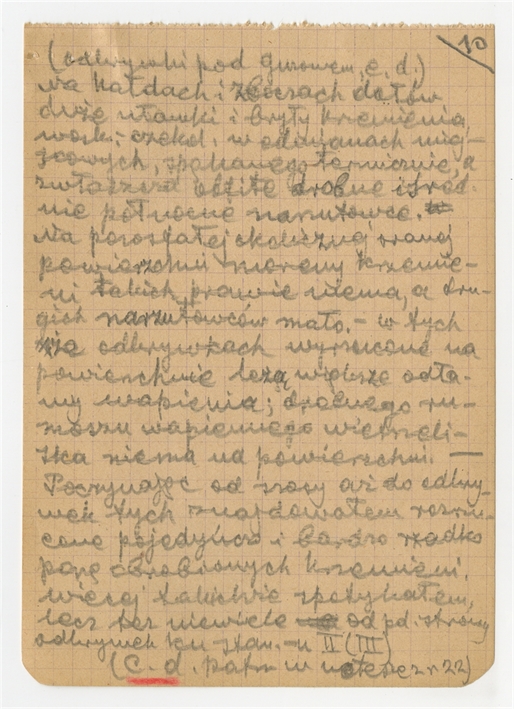 10
(odkrywki pod Gurowem, c. d.)
Na hałdach i zboczach dołów
duże ułamki i bryły krzemienia
wosk. czekol. w odmianach miej-
scowych, spękanego termicznie, a
zwłaszcza obfite drobne i śred-
nie północne narzutowce.
Na pozostałej okolicznej ornej
powierzchni moreny krzemie-
ni takich prawie niema, a dru-
gich narzutowców mało. – w tych
że odkrywkach wyrzucone na
powierzchnię leżą większe odła-
my wapienia; drobnego ru-
moszu wapiennego wietrzeli-
ska niema na powierzchni. —
Poczynając od szosy aż do odkry-
wek tych znajdowałem rozrzu-
cone pojedyńczo i bardzo rzadko
parę obrobionych krzemieni.
więcej takichże spotykałem,
lecz też niewiele od pd. strony
odkrywek ku stan.-u II (III)
(c. d. patrz w notesie z r. 22)